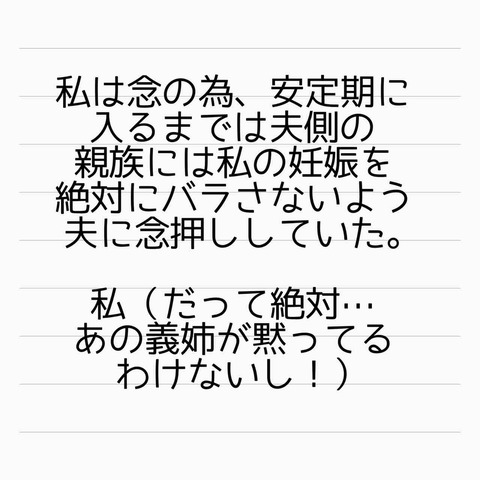 私は念の為、安定期に
入るまでは夫側の
親族には私の妊娠を
絶対にバラさないよう
夫に念押ししていた。
私（だって絶対…
あの義姉が黙ってる
わけないし！）